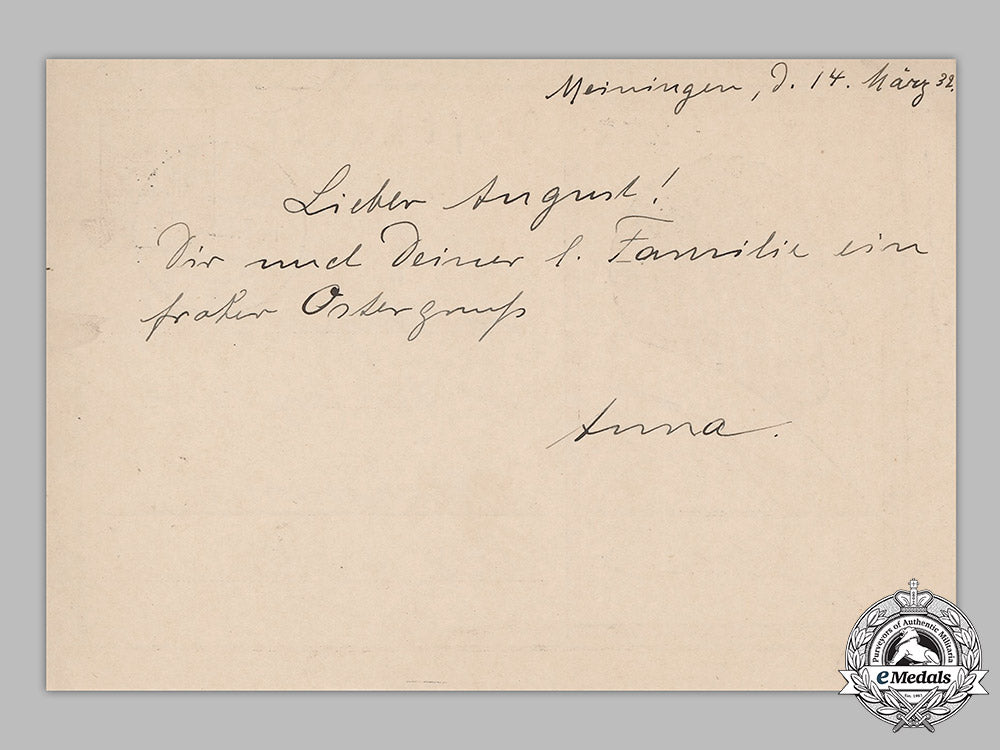 Meiningen, d. 14. März 32.
Lieber August!
Dir und Deiner l. Familie ein
froher Ostergruß
Anna.
Purveyors of Authentic Militaria
eMedals
Est. 1967